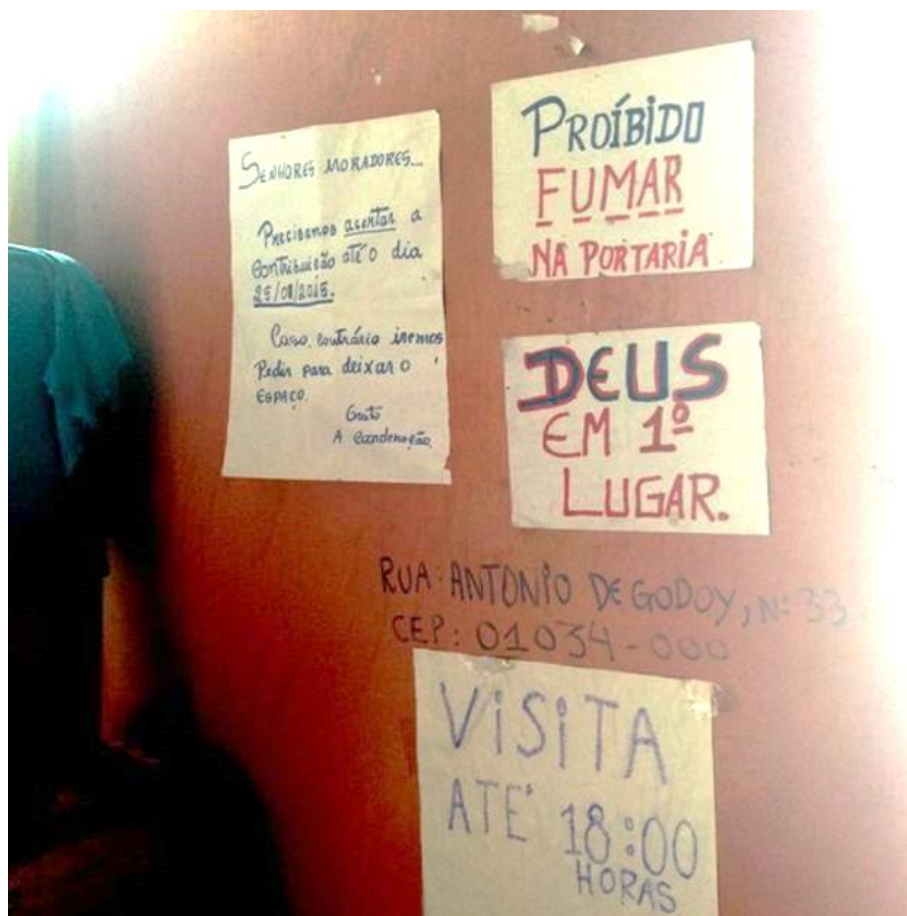 SENHORES MORADORES...
Precisamos acertar a
contribuição até o dia
25/08/2015.
Caso contrário iremos
Pedir para deixar o
ESPAÇO.
Grato
A Coordenação.
PROÍBIDO
FUMAR
NA PORTARIA
DEUS
EM 1º
LUGAR.
RUA: ANTONIO DE GODOY, Nº 33
CEP: 01034-000
VISITA
ATÉ 18:00
HORAS